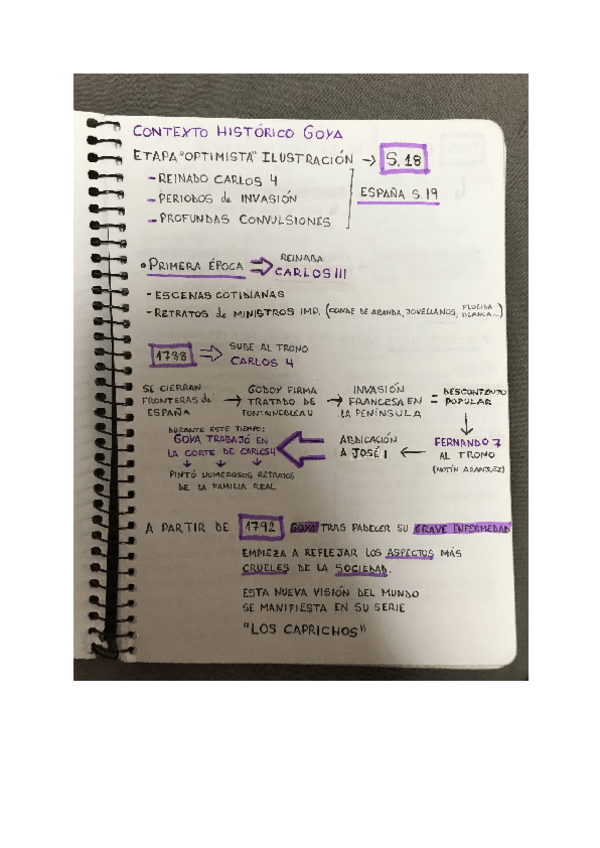 CONTEXTO HISTÓRICO GOYA
ETAPA "OPTIMISTA" ILUSTRACIÓN → S.18
- REINADO CARLOS 4
- PERIODOS de INVASIÓN
- PROFUNDAS CONVULSIONES
ESPAÑA S.19
• PRIMERA ÉPOCA ⇒ REINABA
CARLOS III
- ESCENAS COTIDIANAS
- RETRATOS de MINISTROS IMP. (CONDE DE ARANDA, JOVELLANOS, FLORIDA BLANCA...)
1788 ⇒ SUBE AL TRONO
CARLOS 4
SE CIERRAN
FRONTERAS de
ESPAÑA
→ GODOY FIRMA
TRATADO DE
FONTAINEBLEAU
→ INVASIÓN
FRANCESA EN
LA PENÍNSULA
= DESCONTENTO
POPULAR
↓
FERNANDO 7
AL TRONO
(MOTÍN ARANJUEZ)
← ABDICACIÓN
A JOSÉ I
DURANTE ESTE TIEMPO:
GOYA TRABAJÓ EN
LA CORTE DE CARLOS 4
↓ ↓ ↓
PINTÓ NUMEROSOS RETRATOS
DE LA FAMILIA REAL
A PARTIR DE 1792 GOYA TRAS PADECER SU GRAVE ENFERMEDAD
EMPIEZA A REFLEJAR LOS ASPECTOS MÁS
CRUELES DE LA SOCIEDAD.
ESTA NUEVA VISIÓN DEL MUNDO
SE MANIFIESTA EN SU SERIE
"LOS CAPRICHOS"